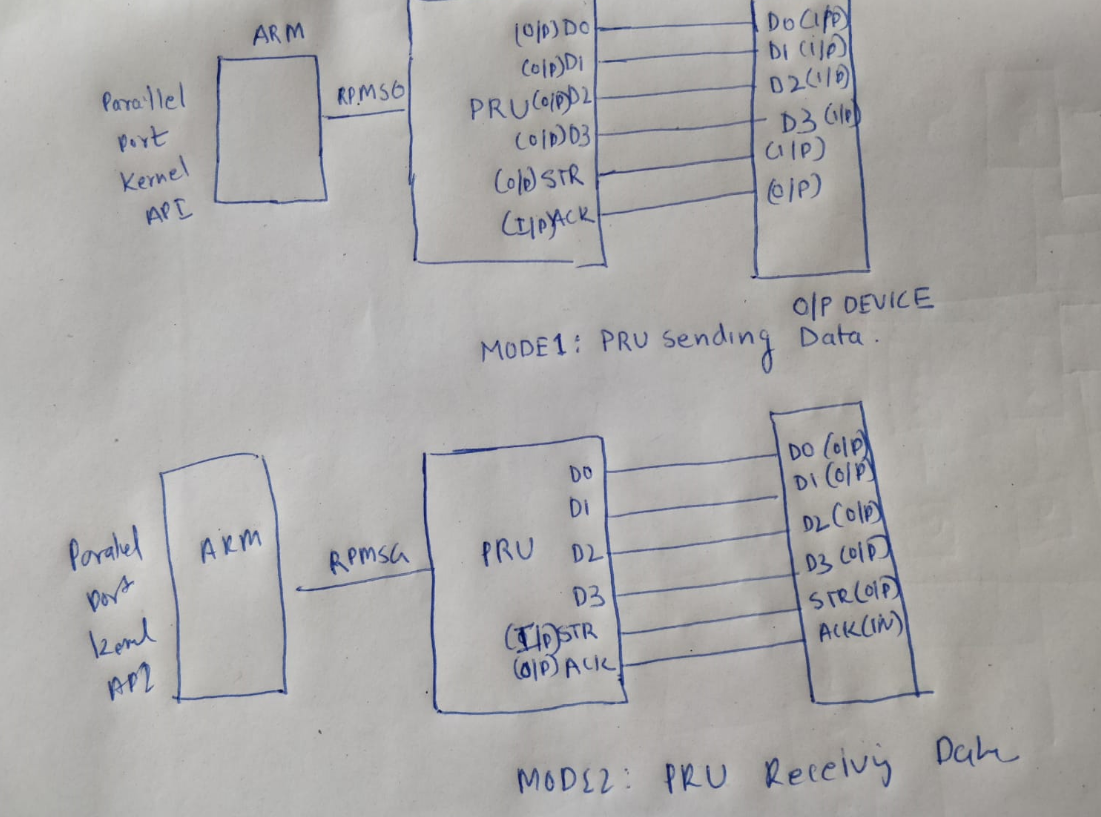 ARM
Parallel
port
Kernel
API
RPMSG
(O/P) D0
(O/P) D1
PRU (O/P) D2
(O/P) D3
(O/P) STR
(I/P) ACK
D0 (I/P)
D1 (I/P)
D2 (I/P)
D3 (I/P)
(I/P)
(O/P)
O/P DEVICE
MODE1: PRU sending Data.
Parallel
port
kernel
API
ARM
RPMSG
PRU
D0
D1
D2
D3
(I/P) STR
(O/P) ACK
D0 (O/P)
D1 (O/P)
D2 (O/P)
D3 (O/P)
STR (O/P)
ACK (IN)
MODE2: PRU Receiving Data